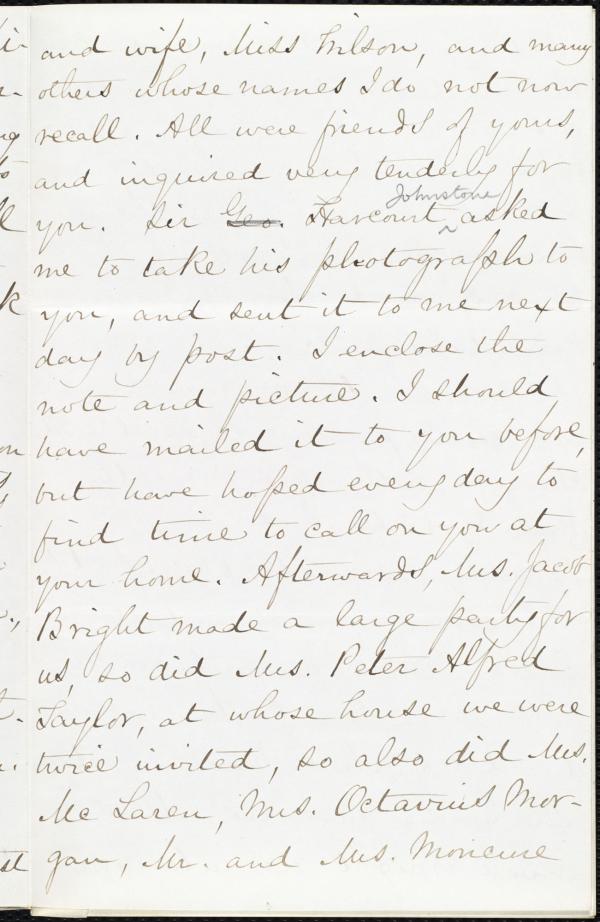 and wife, Miss Wilson, and many
others whose names I do not now
recall. All were friends of yours,
and inquired very tenderly for
you. Sir Geo. Harcourt Johnstone asked
me to take his photograph to
you, and sent it to me next
day by post. I enclose the
note and picture. I should
have mailed it to you before,
but have hoped every day to
find time to call on you at
your home. Afterwards, Mrs. Jacob
Bright made a large party for
us, so did Mrs. Peter Alfred
Taylor, at whose house we were
twice invited, so also did Mrs.
Mc Laren, Mrs. Octavius Mor-
gan, Mr. and Mrs. Moncure